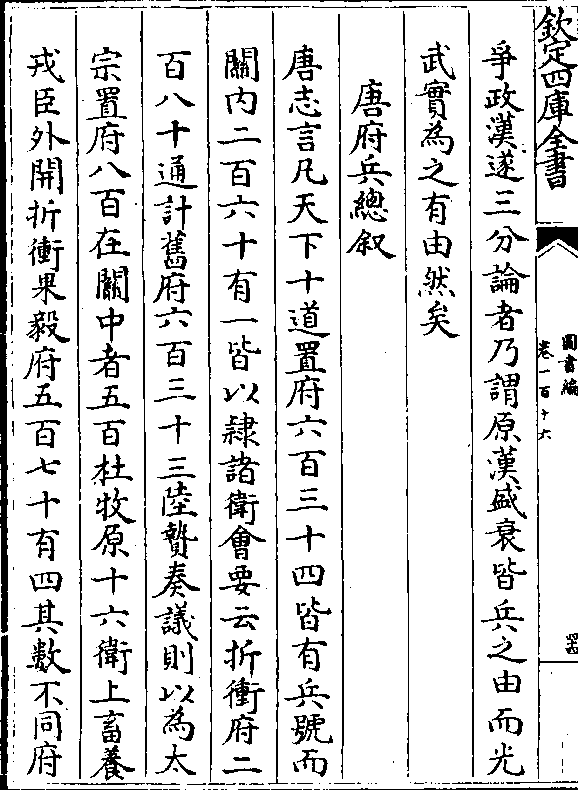 欽定四庫全書
圖書編
卷一百十六
爭政漢遂三分論者乃謂原漢盛衰皆兵之由而光
武實為之有由然矣
唐府兵總叙
唐志言凡天下十道置府六百三十四皆有兵號而
關内二百六十有一皆以隸諸衛會要云折衝府二
百八十通計舊府六百三十三陸贄奏議則以為太
宗置府八百在關中者五百杜牧原十六衛上畜養
戎臣外開折衝果毅府五百七十有四其數不同府